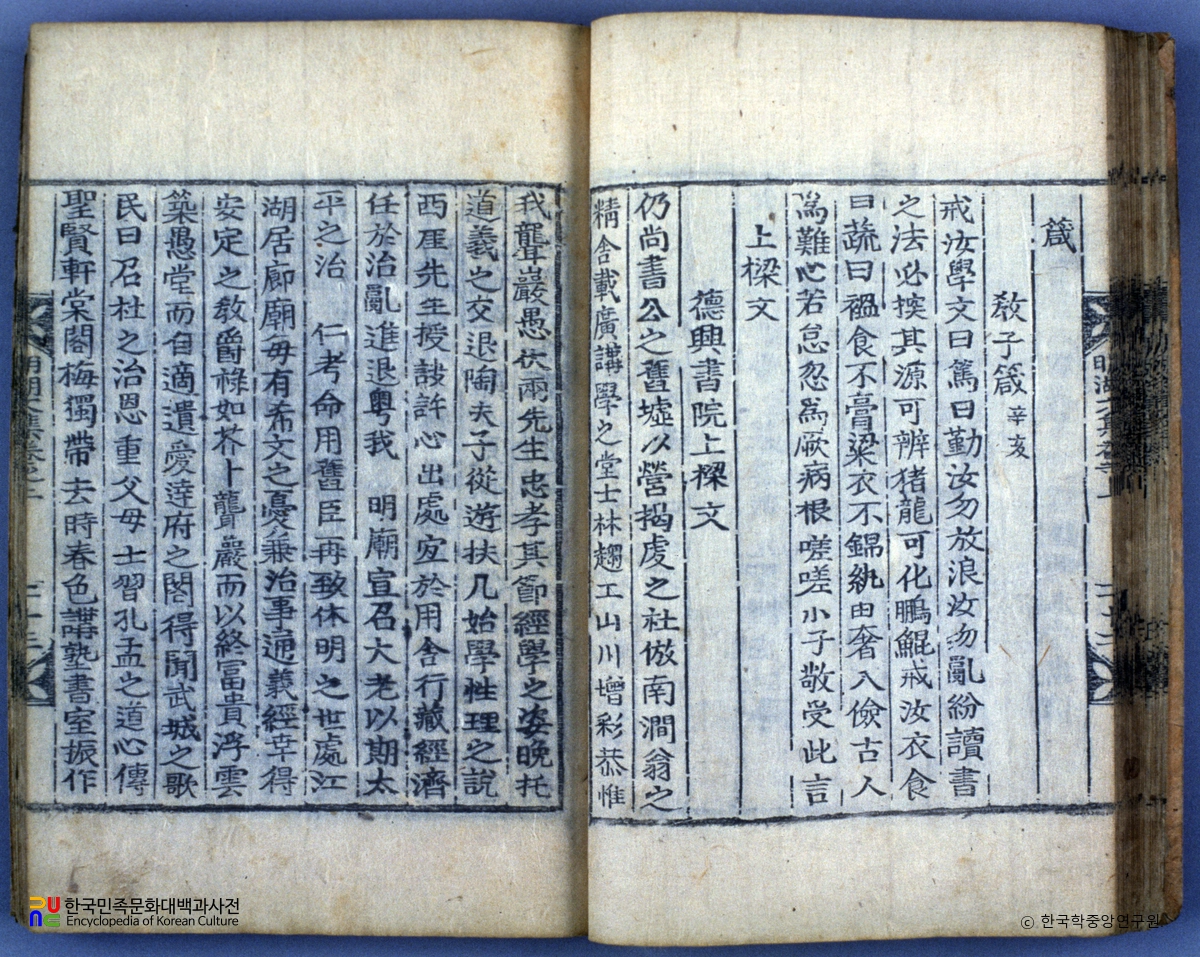 箴
敎子箴 辛亥
戒汝學文曰篤曰勤汝勿放浪汝勿亂紛讀書
之法必揬其源可辨猪龍可化鵬鯤戒汝衣食
曰蔬曰褞食不膏粱衣不錦紈由奢入儉古人
爲難心若怠忽爲厥病根嗟嗟小子敬受此言
上樑文
德興書院上樑文
仍尚書公之舊墟以營揭虔之社倣南澗翁之
精舍載廣講學之堂士林趨工山川增彩恭惟
我聾巖愚伏兩先生忠孝其節經學之姿晩托
道義之交退陶夫子從遊扶几始學性理之說
西厓先生授詖許心出處宜於用舍行藏經濟
任於治亂進退粵我 明廟宣召大老以期太
平之治 仁考命用舊臣再致休明之世處江
湖居廊廟每有希文之憂兼治事通義經幸得
安定之敎爵祿如芥卜聾巖而以終富貴浮雲
築愚堂而自適遺愛達府之閣得聞武城之歌
民曰召杜之治恩重父母士習孔孟之道心傳
聖賢軒棠閣梅獨帶去時春色講塾書室振作
한국민족문화대백과사전
Encyclopedia of Korean Culture
ⓒ 한국학중앙연구원